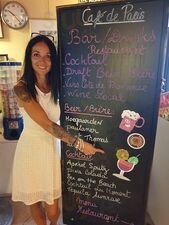 Café de Paris
Bar/Drinks
Restaurant
Cocktail
Draft Beer Bière
Vins Côte de Provence
Wine Local
Beer/Bière
Hoegaarden
paulaner
Saint Thomas
Cocktail
Apérol Spritz
Pina Colada
Sex on the Beach
Cocktail du Moment
Tequila Sunrise
Menu
Restaurant